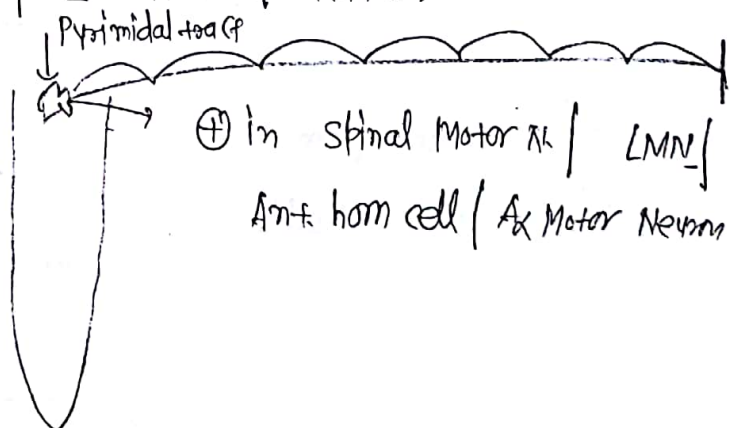 Pyrimidal tract
⊕ in Spinal Motor N | LMN |
Ant. horn cell / Aα Motor Neuron